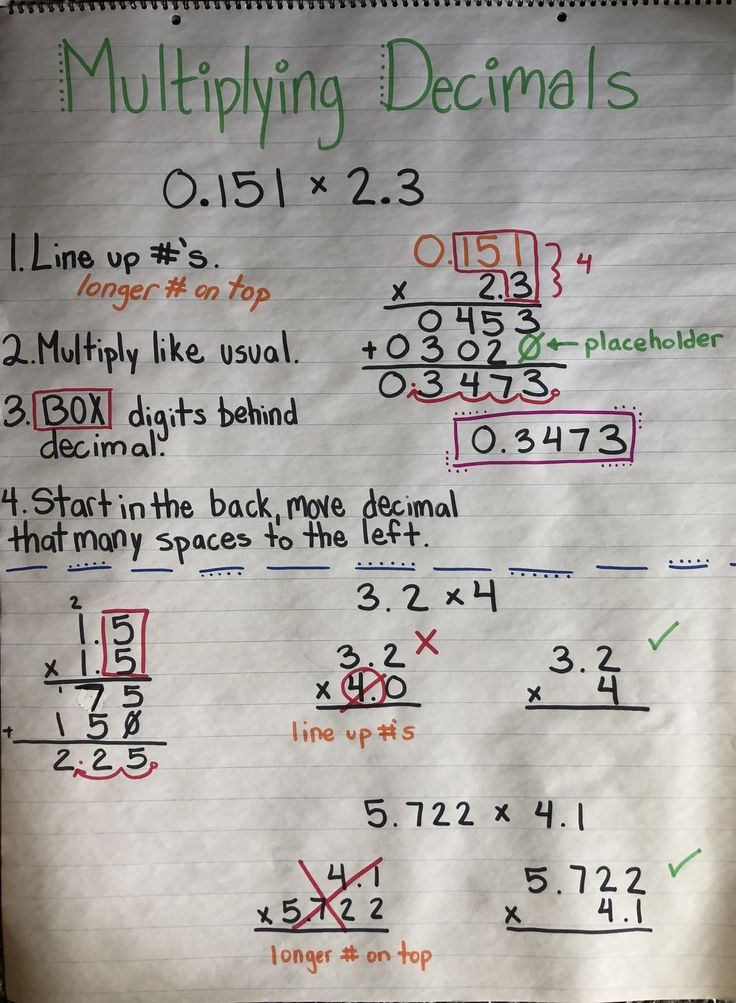 Multiplying Decimals
0.151 × 2.3
1. Line up #'s.
longer # on top
2. Multiply like usual.
3. BOX digits behind
decimal.
4. Start in the back, move decimal
that many spaces to the left.
0.151
4
× 2.3
0453
+ 03020 ← placeholder
0.3473.
0.3473
2
1.5
× 1.5
1
75
+ 150
2.25.
3.2 × 4
3.2 ×
× 4.0
line up #'s
3.2 ✓
× 4
5.722 × 4.1
4.1
× 5.722
longer # on top
5.722 ✓
× 4.1